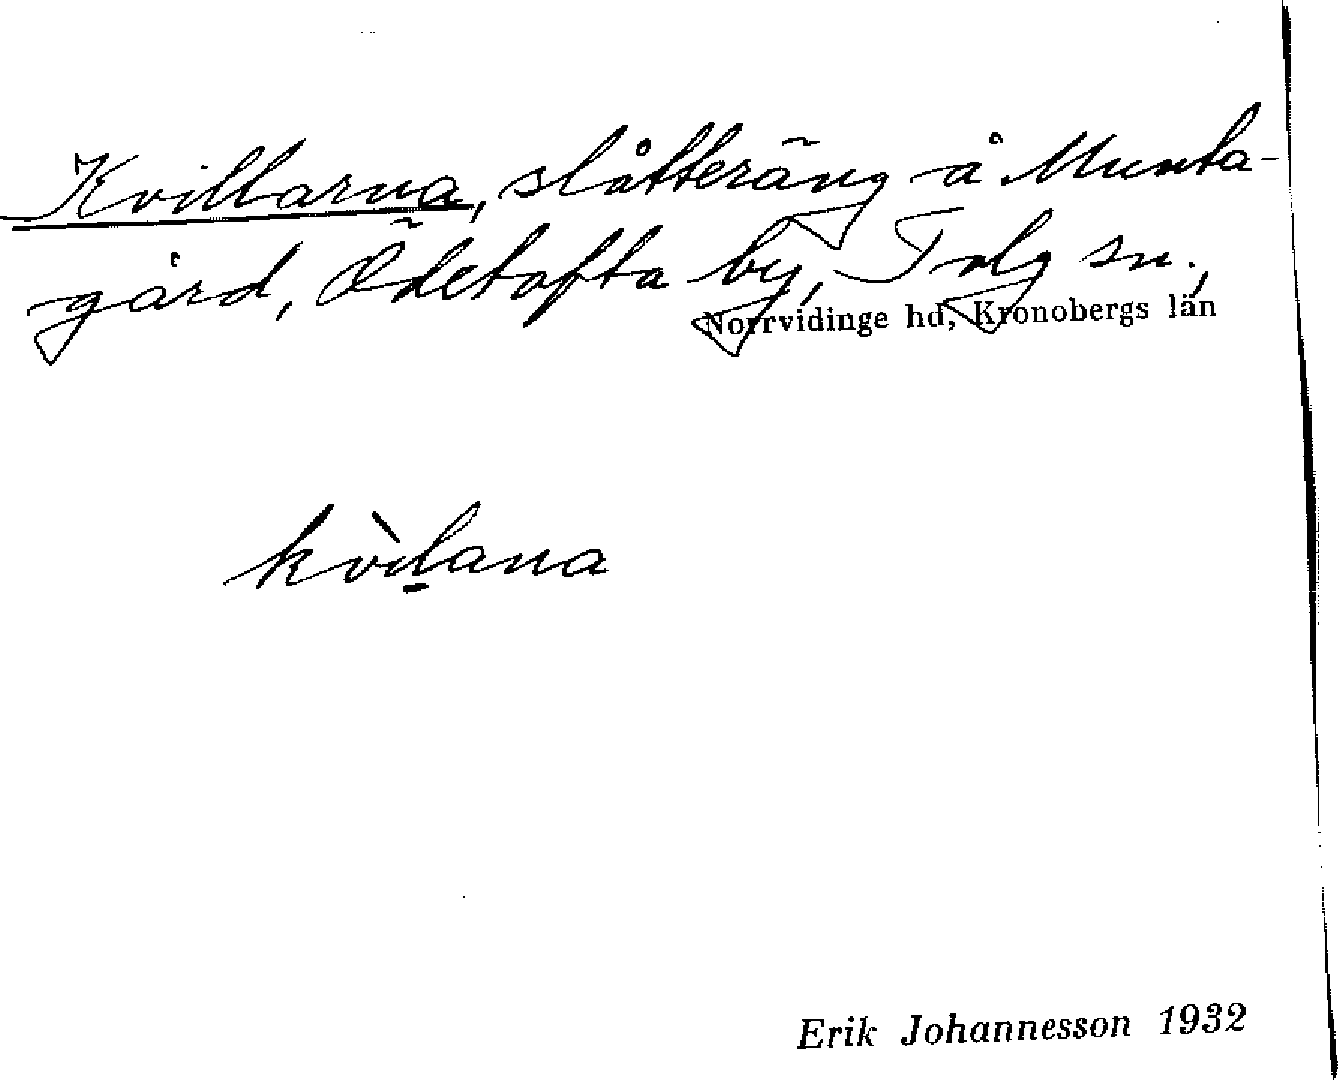 Kvillarna, slåtteräng å Munta-
gård, Ödetofta by, Tolg sn.,
Norrvidinge hd, Kronobergs län
kvìlana
Erik Johannesson 1932